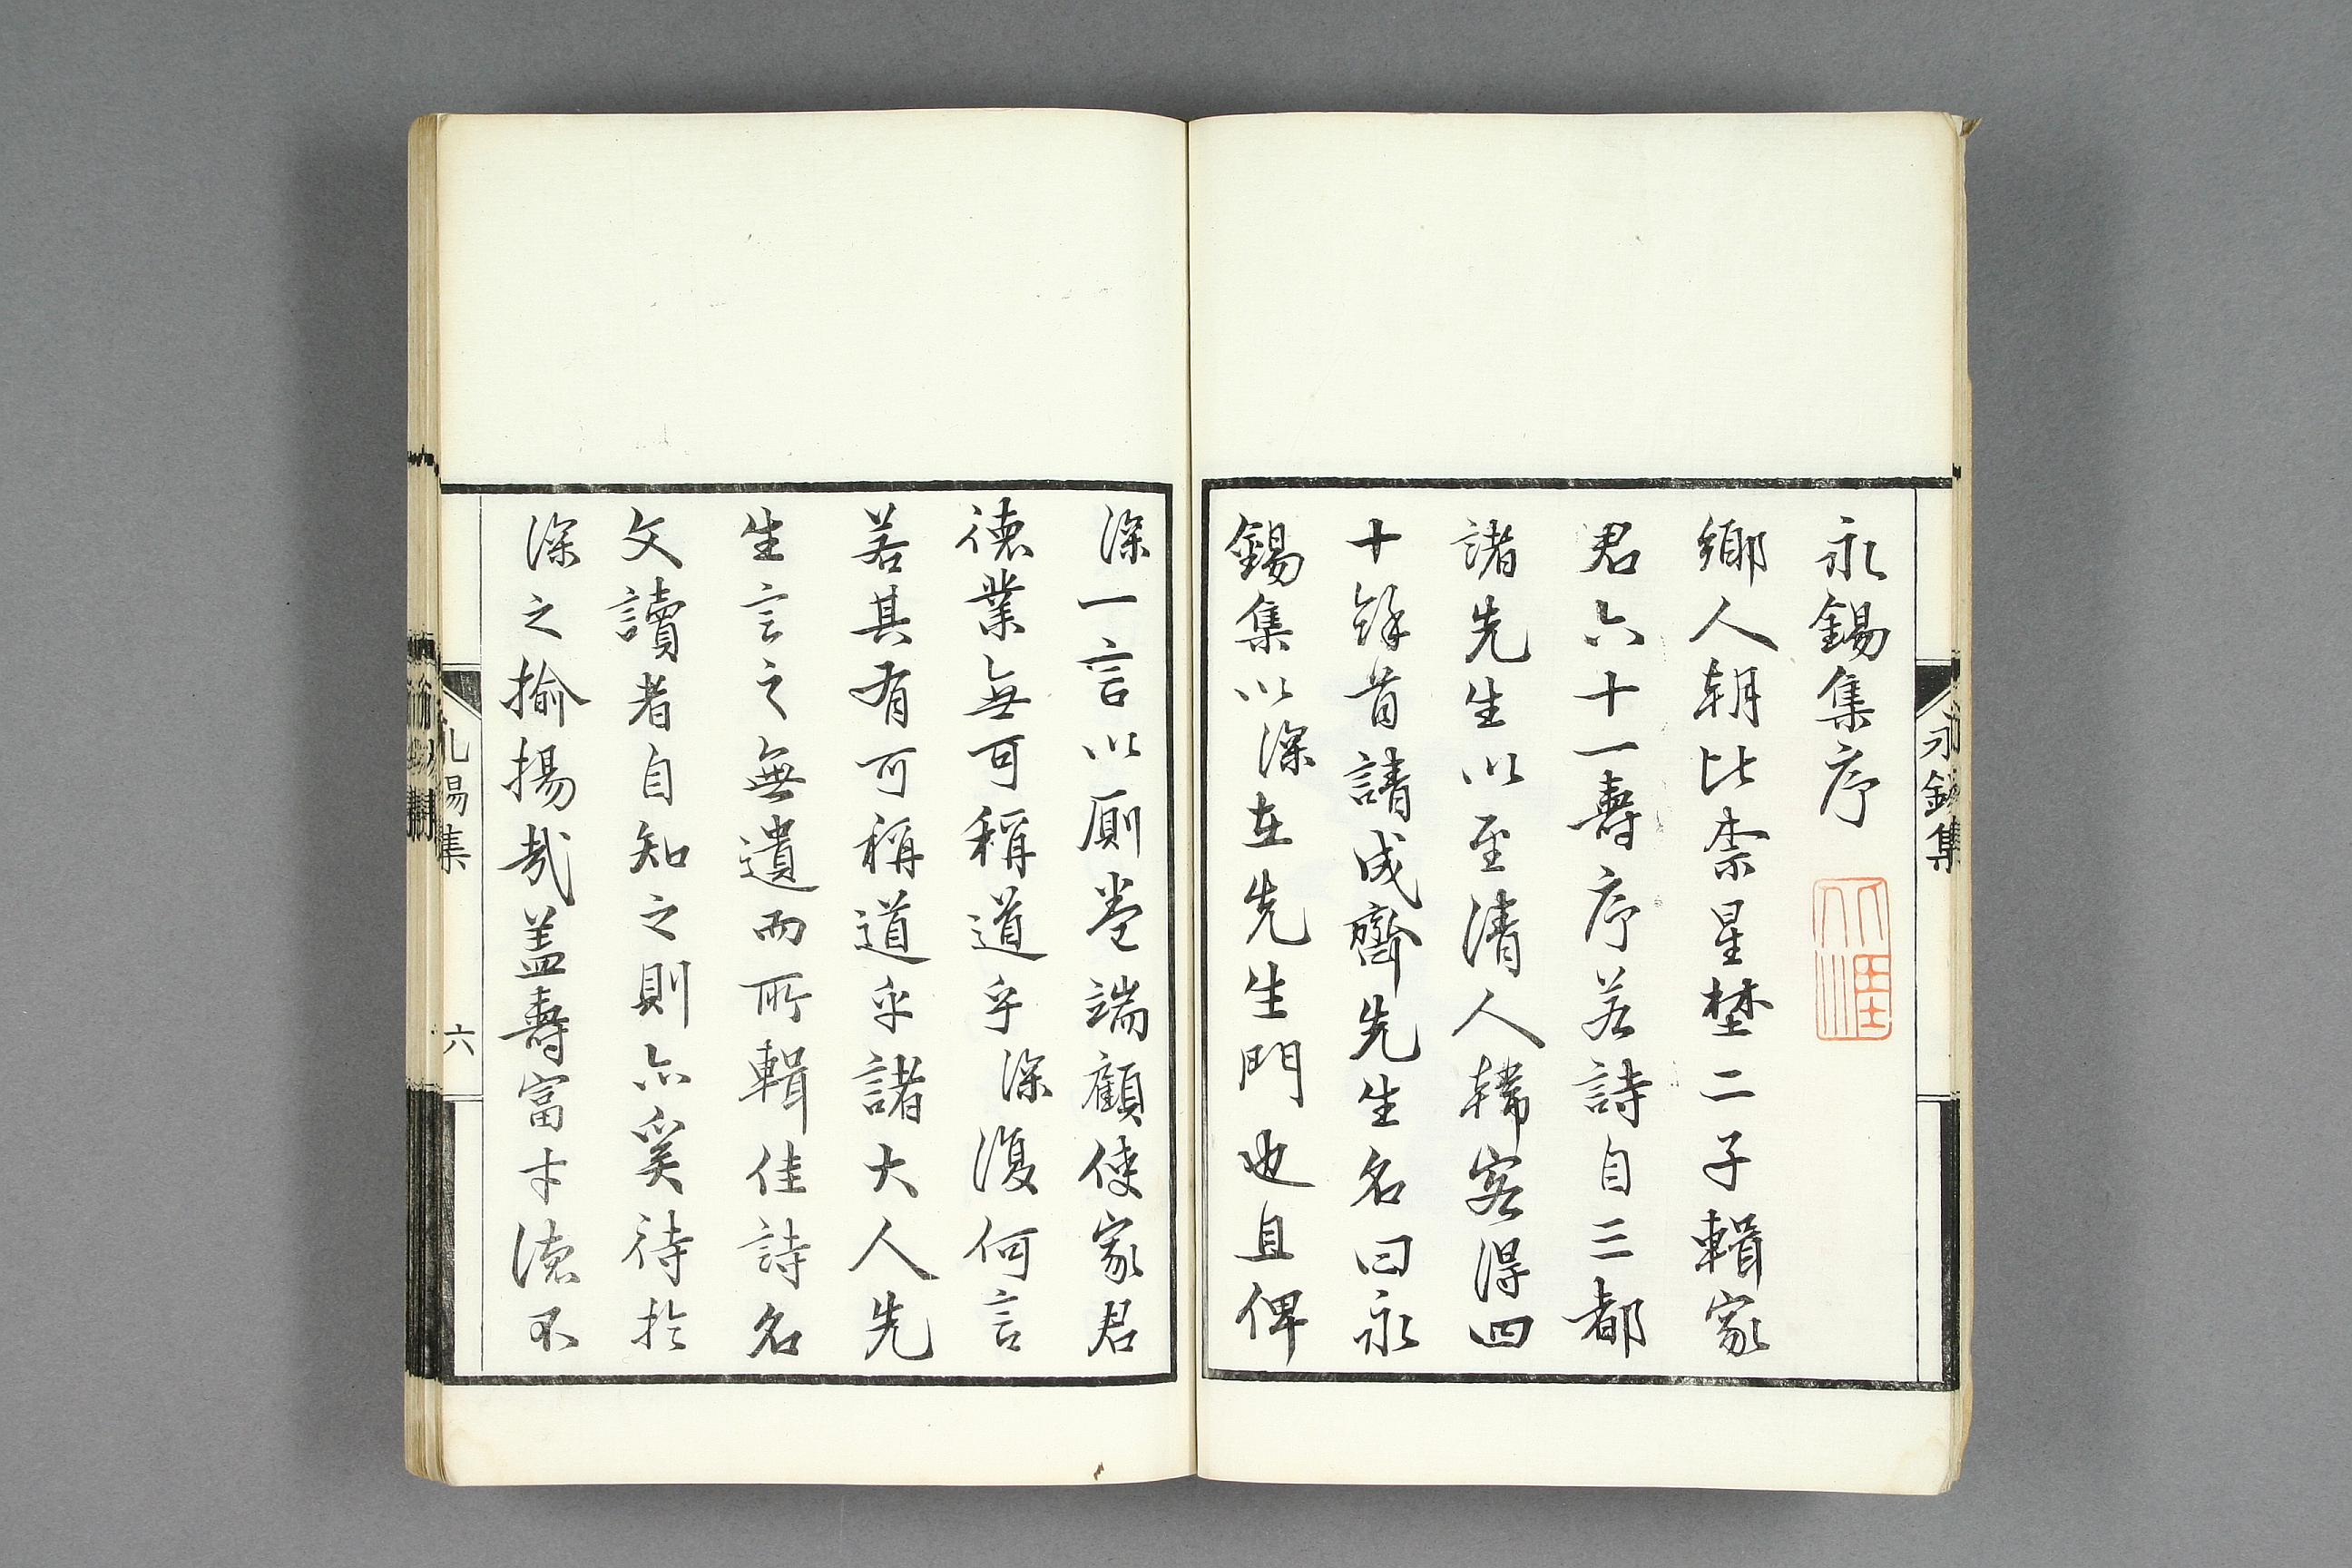 永錫集序
鄉人朝比柰星埜二子輯家
君六十一壽序若詩自三都
諸先生以至清人韓客得四
十餘首請成齋先生名曰永
錫集以深在先生門也且俾
深一言以厠卷端顧使家君
德業無可稱道乎深復何言
若其有可稱道乎諸大人先
生言之無遺而所輯佳詩名
文讀者自知之則亦奚待於
深之揄揚哉蓋壽富才德不
永錫集
永錫集
六